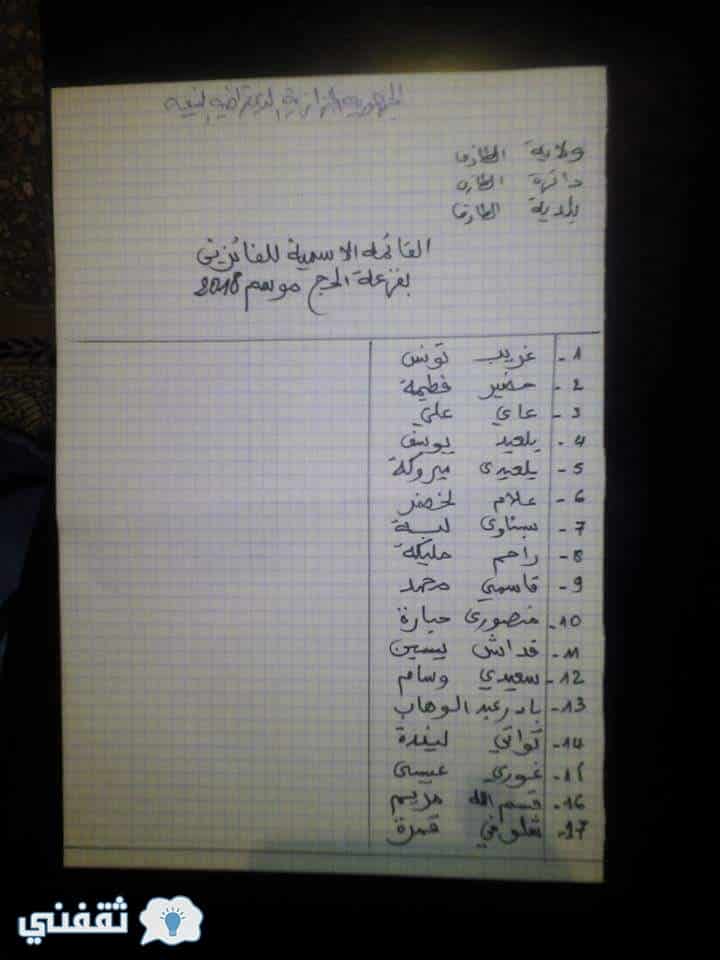 الجمهورية الجزائرية الديمقراطية الشعبية
ولاية الطارف
دائرة الطارف
بلدية الطارف
القائمة الاسمية للفائزين
بقرعة الحج موسم 2018
1- غريب تونس
2- خضير فطيمة
3- عاي علي
4- بلعيد يوسف
5- بلعيدي مبروكة
6- علام لخضر
7- سيناوي
8- راحم مليكة
9- قاسمي محمد
10- منصوري حبارة
11- قداش يسين
12- سعيدي وسام
13- بادر عبد الوهاب
14- تواتي ليندة
15- غوري عيسى
16- قسم الله مريم
17- شلوفي قمرة
ثقفني